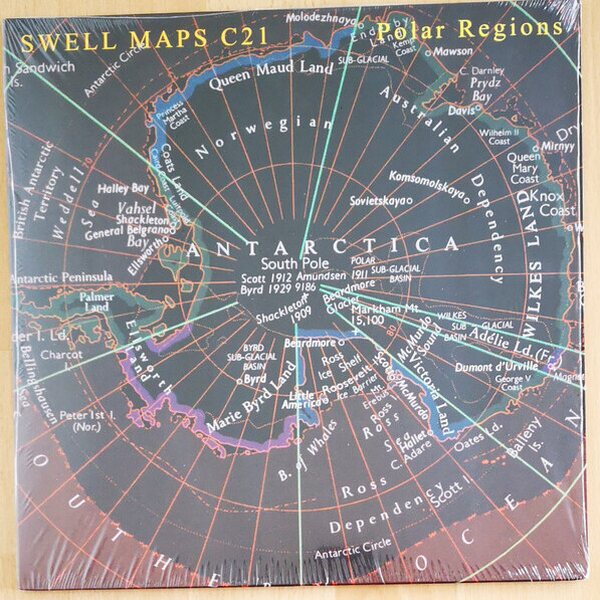 SWELL MAPS C21
Polar Regions
Molodezhnaya
Enderby
Land
Kemp
Coast
Mawson
SUB-GLACIAL
Antarctic Circle
Sandwich
Is.
Queen Maud Land
C. Darnley
Prydz
Bay
Davis
Princess
Martha
Coast
Norwegian
Australian
Dependency
Wilhelm II
Coast
Mirnyy
Queen
Mary
Coast
Knox
Coast
WILKES LAND
British Antarctic
Territory
Weddell
Sea
Coats Land
Caird Coast
Luitpold
Coast
Halley Bay
Vahsel
Shackleton
General Belgrano
Bay
Ellsworth
Komsomolskaya
Sovietskaya
ANTARCTICA
South Pole
Scott 1912 Amundsen 1911
Byrd 1929 9186
POLAR
SUB-GLACIAL
BASIN
Shackleton
1909
Beardmore
Glacier
Markham Mt.
15,100
Antarctic Peninsula
Palmer
Land
Charcot
I.
Bellingshausen
Sea
Ellsworth
Land
Peter 1st I.
(Nor.)
BYRD
SUB-GLACIAL
BASIN
Byrd
Marie Byrd Land
Beardmore
Ross
Ice Shelf
Roosevelt I.
Ice Barrier
Little
America
B. of Whales
Scott
McMurdo
McMurdo
Sound
Victoria Land
Mt.
Erebus
Ross
Ross
Sea
Hallet
C. Adare
WILKES
SUB GLACIAL
BASIN
80
Adélie Ld.(F.
Dumont d'Urville
George V
Coast
Magne
Oates Ld.
Balleny
Is.
Scott I.
Ross
Dependency
Antarctic Circle
OUTHER
OCEAN